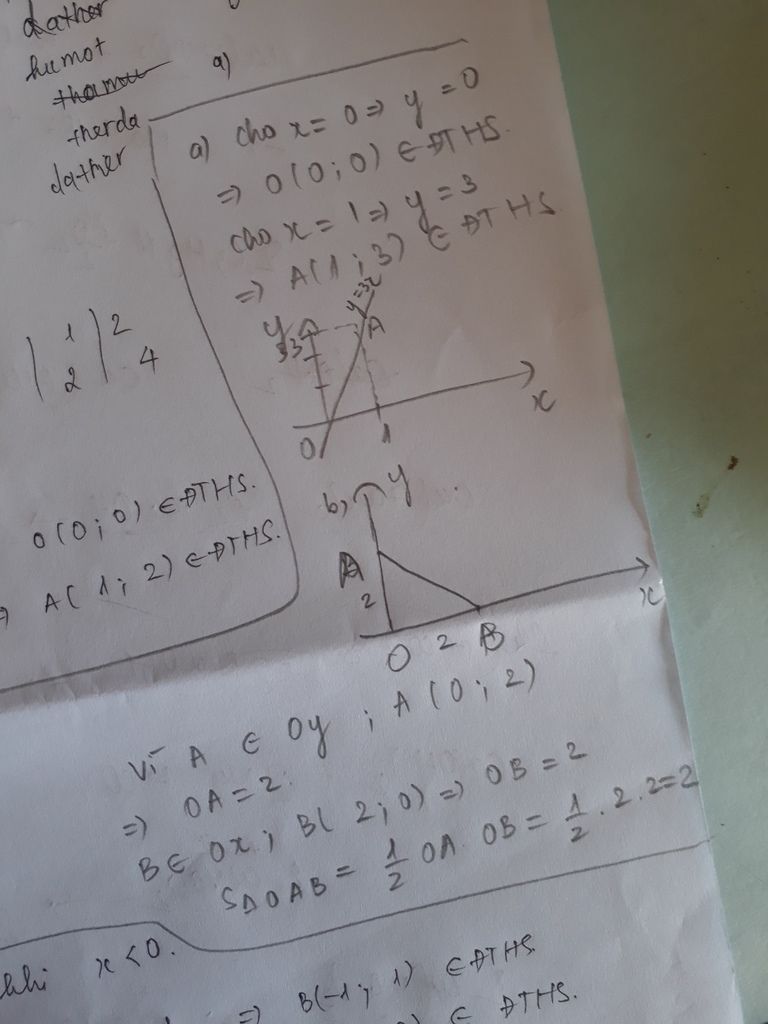 dather
humot
thamou
therda
dather
a)
a) cho x = 0 => y = 0
=> O(0;0) ∈ ĐTHS.
cho x = 1 => y = 3
=> A(1;3) ∈ ĐTHS
y
y=3x
3
A
O
1
x
1 2
2 4
O(0;0) ∈ ĐTHS.
A(1;2) ∈ ĐTHS.
b)
y
A
2
O 2 B
x
Vì A ∈ Oy ; A(0;2)
=> OA = 2.
B ∈ Ox ; B(2;0) => OB = 2
SΔOAB = 1/2 OA. OB = 1/2 . 2. 2 = 2
khi x < 0.
=> B(-1; 1) ∈ ĐTHS
∈ ĐTHS.